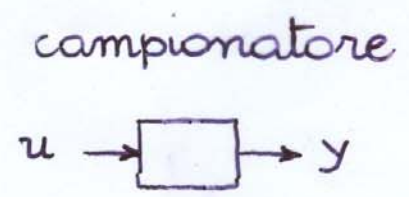 campionatore
u y